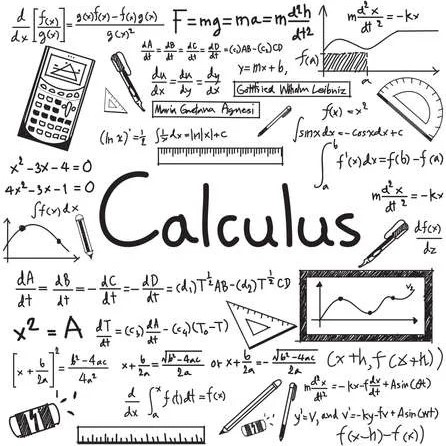 d/dx [f(x)/g(x)] = g(x)f(x)-f(x)g(x)/g(x)²
F=mg=ma=m d²h/dt²
m d²x/dt² = -kx
dA/dt = dB/dt = dC/dt = dD/dt = (c₃)AB-(c₄)CD
f(a)
du/dx = du/dy dy/dx
y=mx+b,
Gottfried Wilhelm Leibniz
Maria Gaetana Agnesi
f(x) = x²
(ln x)' = 1/x
∫ 1/x dx = ln|x|+c
∫sinx dx = -cosx dx + c
x²-3x-4=0
∫ₐᵇ f'(x)dx = f(b)-f(a)
4x²-3x-1=0
m d²x/dt² = -kx
∫f(x)dx
Calculus
df(x)/dz
dA/dt = dB/dt = - dC/dt = - dD/dt = (d₁)T^½ AB-(d₂)T^½ CD
x² = A
dT/dt = (c₃) dA/dt - (c₄)(T₀-T)
[x + b/2a]² = b²-4ac/4a²
x + b/2a = √b²-4ac/2a
or x + b/2a = - √b²-4ac/2a
(x+h,f(x+h))
m d²x/dt² = -kx-f dx/dt + Asin(ωt)
d/dx ∫ₐˣ f(t)dt = f(x)
y'=V, and v'=-ky-fv+Asin(wt)
f(x-h)-f(x))